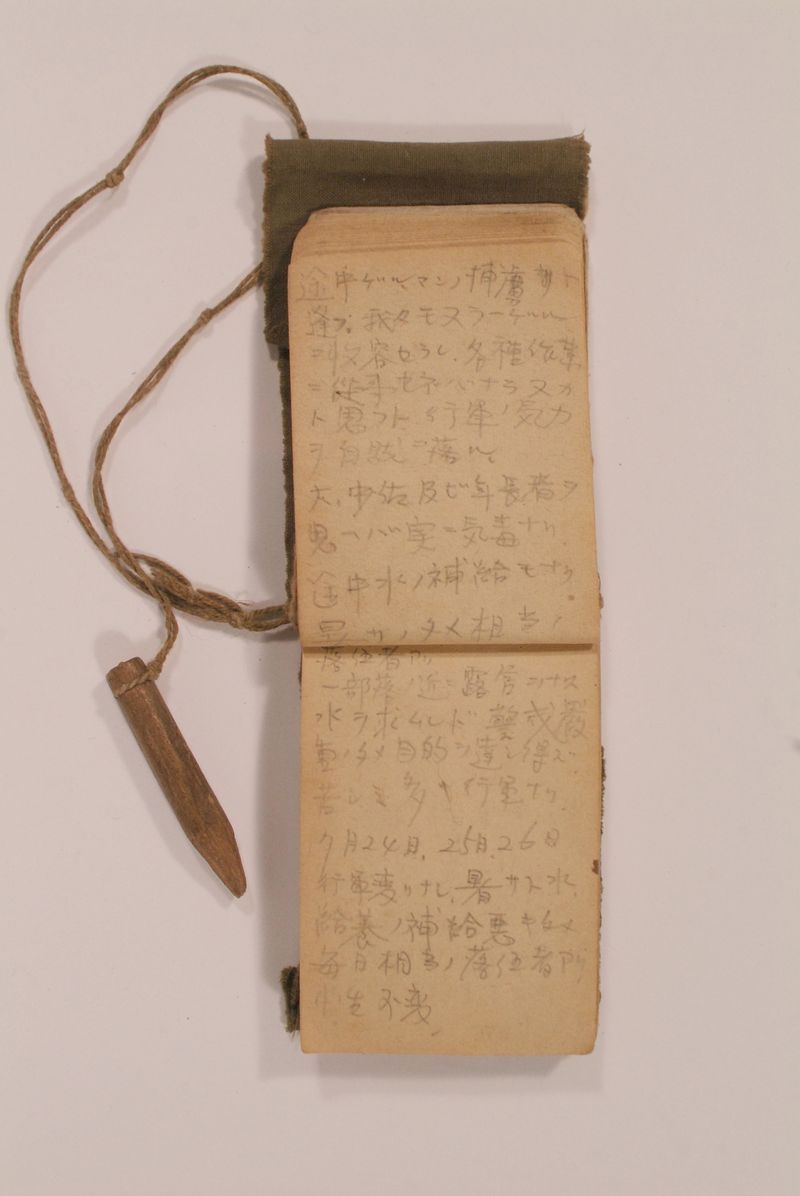 途中ゲルマンノ捕虜サト
逢フ、我々モスラーゲル
ニ収容セラレ、各種作業
ニ従事セネバナラヌカ
ト思フト行軍ノ気力
ヲ自然ニ落ル
大、中佐及ビ年長者ヲ
思ヘバ実ニ気毒ナリ、
途中水ノ補給モナク
暑サノタメ相当ノ
落伍者所
一部落ノ近ニ露営シナス
水ヲ求ムレド警戒厳
重ノタメ目的ヲ達シ得ズ
苦シミ多キ行軍ナリ、
9月24日、25日、26日
行軍変リナシ、暑サト水、
給養ノ補給悪キタメ
毎日相当ノ落伍者所
小生不変